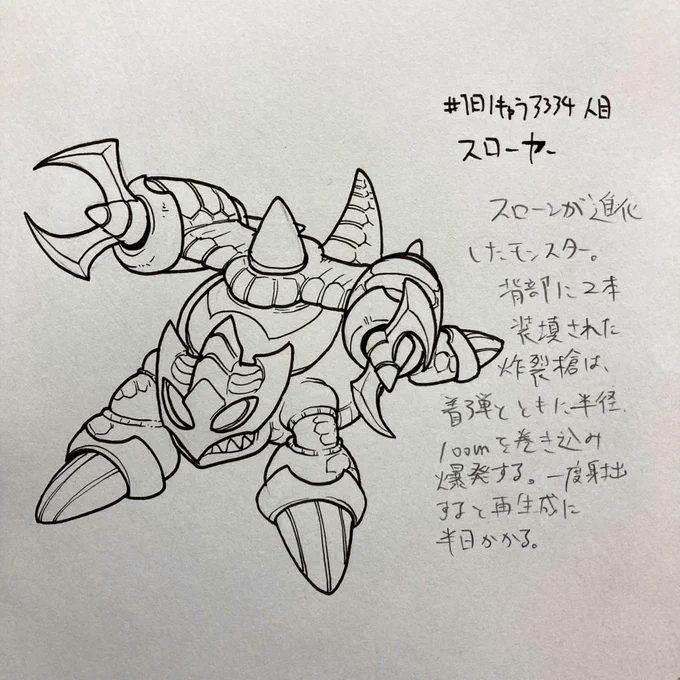 #1日1きゅう3334人目
スローヤー
スローンが進化
したモンスター。
背部に2本
装填された
炸裂槍は、
着弾とともに半径
100mを巻き込み
爆発する。一度射出
すると再生成に
半日かかる。